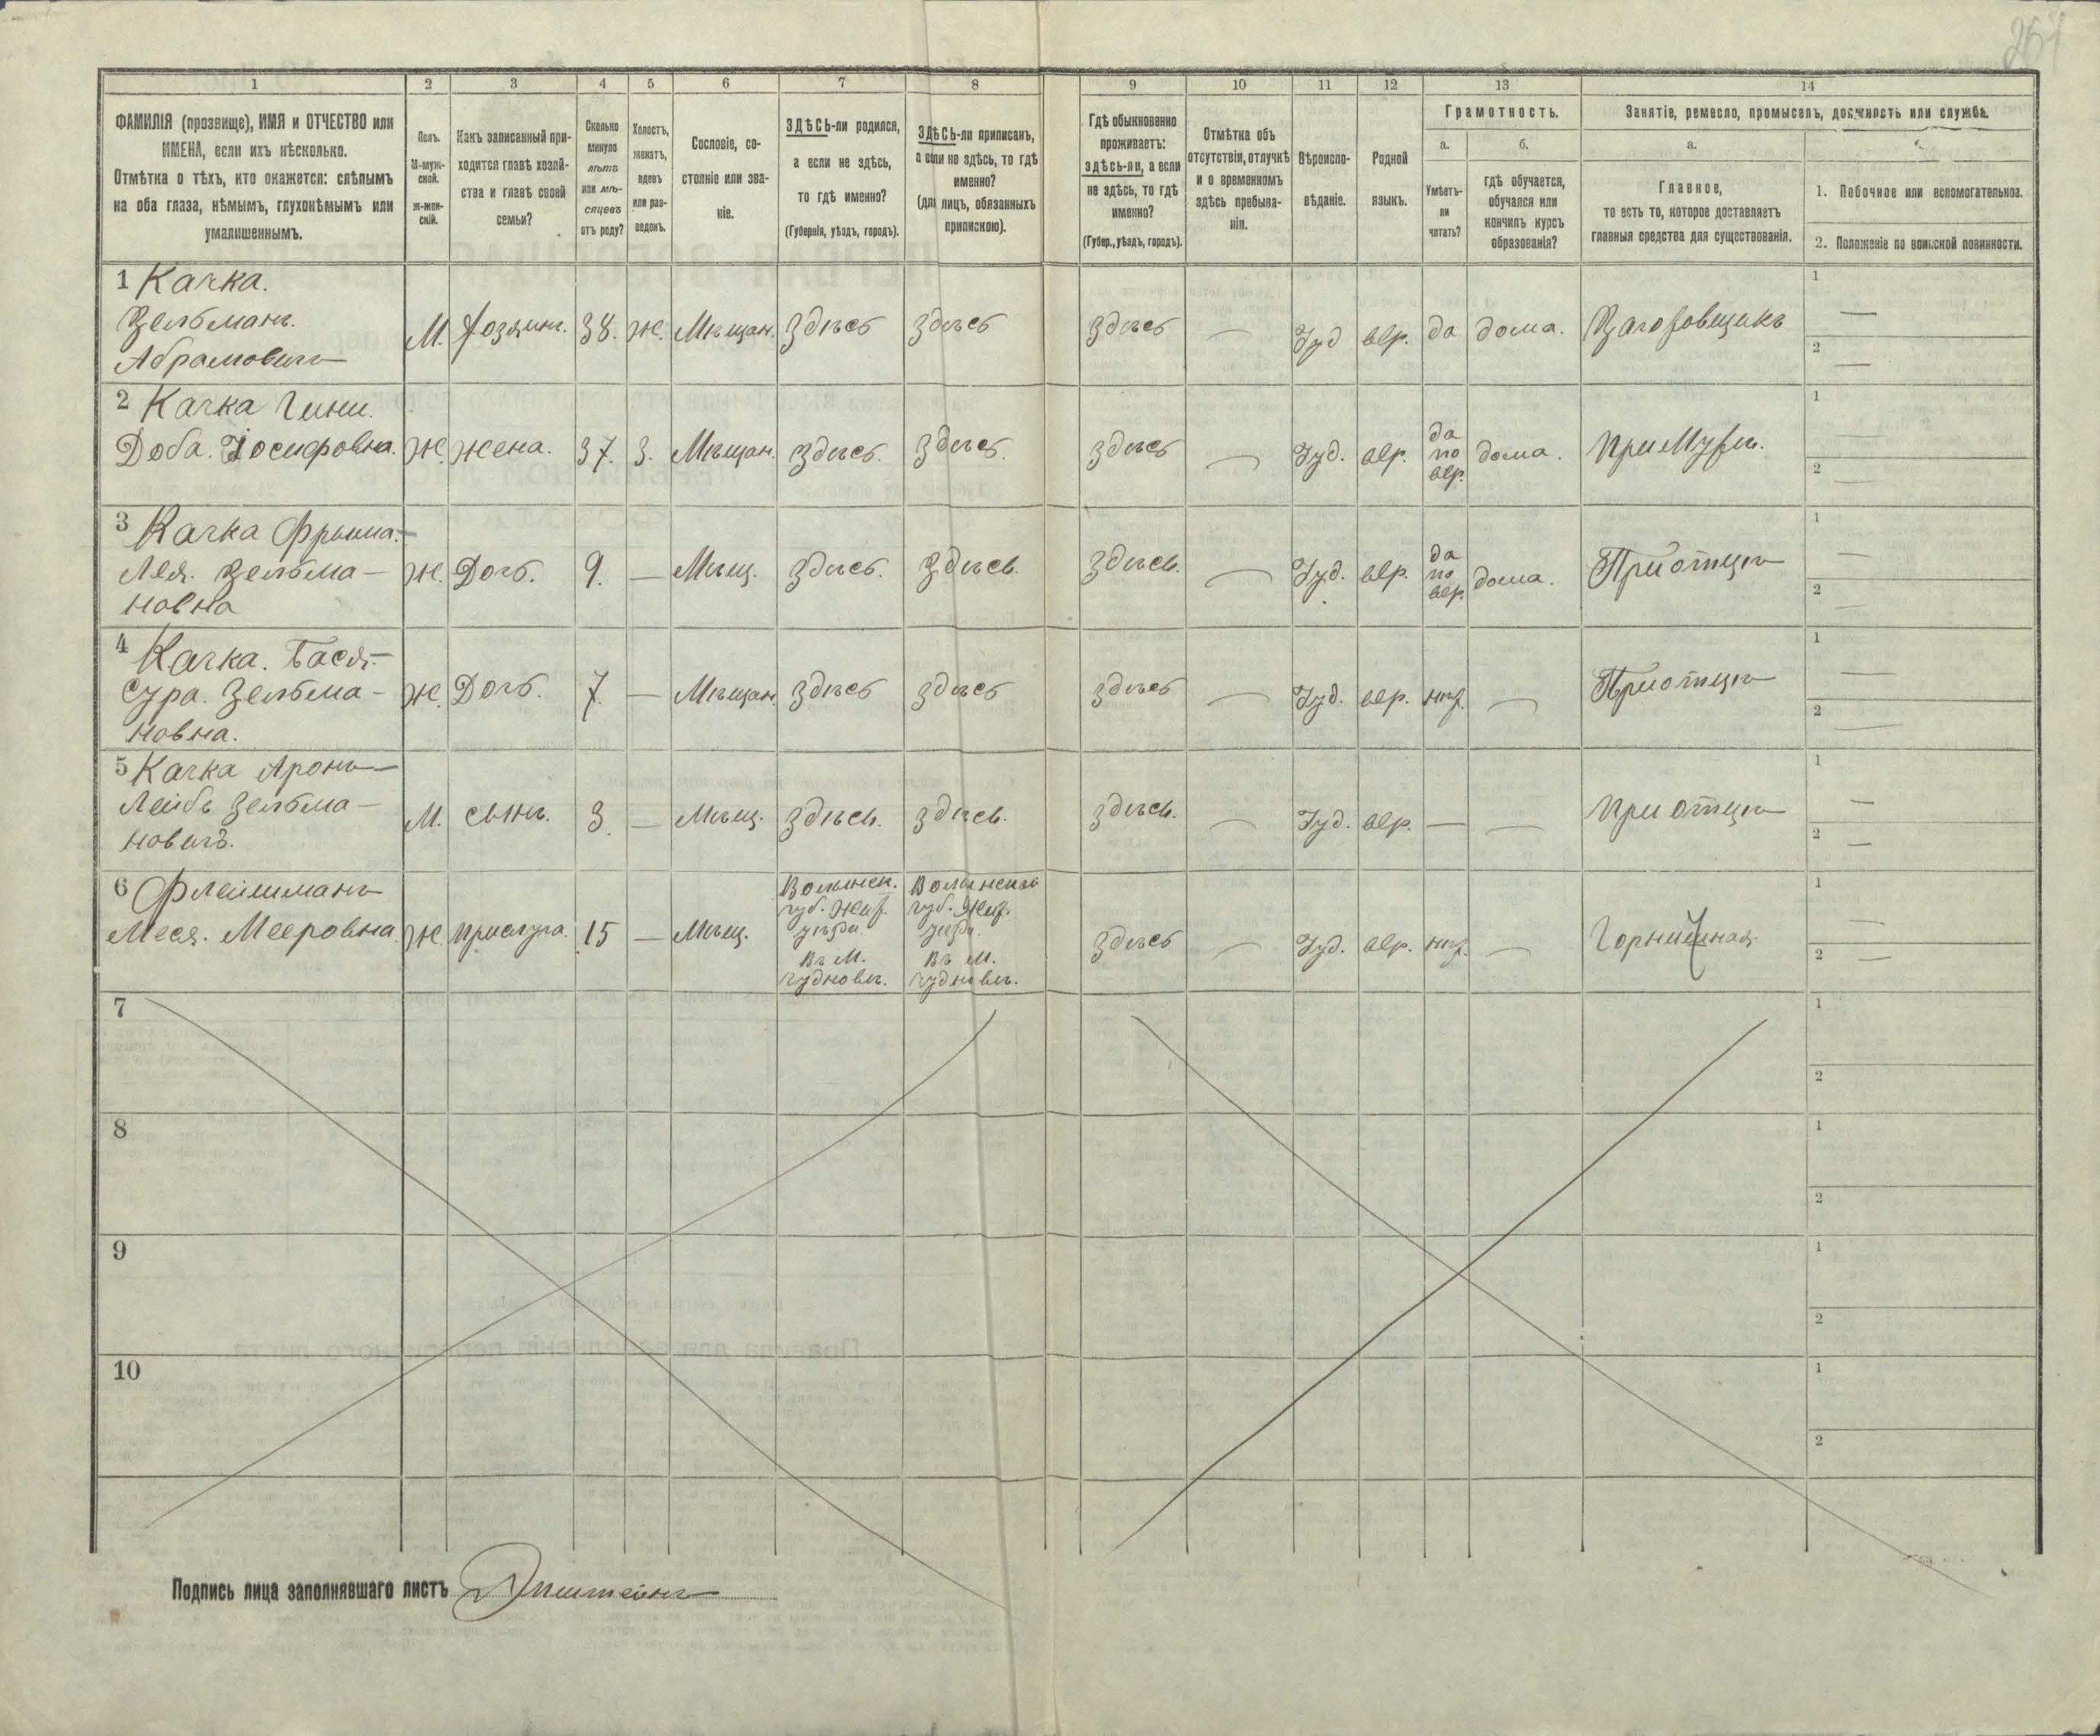 264
1 2 3 4 5 6 7 8 9 10 11 12 13 14
ФАМИЛІЯ (прозвище), ИМЯ и ОТЧЕСТВО или
ИМЕНА, если ихъ нѣсколько.
Отмѣтка о тѣхъ, кто окажется: слѣпымъ
на оба глаза, нѣмымъ, глухонѣмымъ или
умалишеннымъ.
Полъ.
М-муж-
ской.
Ж-жен-
скій.
Какъ записанный при-
ходится главѣ хозяй-
ства и главѣ своей
семьи?
Сколько
минуло
лѣтъ
или мѣ-
сяцевъ
отъ роду?
Холостъ,
женатъ,
вдовъ
или раз-
веденъ.
Сословіе, со-
стояніе или зва-
ніе.
ЗДѢСЬ-ли родился,
а если не здѣсь,
то гдѣ именно?
(Губернія, уѣздъ, городъ).
ЗДѢСЬ-ли приписанъ,
а если не здѣсь, то гдѣ
именно?
(для лицъ, обязанныхъ
припискою).
Гдѣ обыкновенно
проживаетъ:
здѣсь-ли, а если
не здѣсь, то гдѣ
именно?
(Губер., уѣздъ, городъ).
Отмѣтка объ
отсутствіи, отлучкѣ
и о временномъ
здѣсь пребыва-
ніи.
Вѣроиспо-
вѣданіе.
Родной
языкъ.
Грамотность.
а.
Умѣетъ-
ли
читать?
б.
гдѣ обучается,
обучался или
кончилъ курсъ
образованія?
Занятіе, ремесло, промыселъ, должность или служба.
а.
Главное,
то есть то, которое доставляетъ
главныя средства для существованія.
1. Побочное или вспомогательное.
2. Положеніе по воинской повинности.
1 Качка.
Зельманъ.
Абрамовичъ
М. Хозяинъ. 38. Ж. Мѣщан. Здѣсь Здѣсь Здѣсь — Іуд евр. да дома. Заготовщикъ
1 —
2 —
2 Качка
Доба. Іосифовна. Ж. Жена. 37. З. Мѣщан. Здѣсь. Здѣсь. Здѣсь — Іуд. евр.
да
по
евр.
дома. При Мужѣ.
1 —
2 —
3 Качка Фрыма-
Лея. Зельма-
новна
Ж. Дочь. 9. — Мѣщ. Здѣсь. Здѣсь. Здѣсь. — Іуд. евр.
да
по
евр.
дома. При отцѣ
1 —
2 —
4 Качка. Бася-
Сура. Зельма-
новна.
Ж. Дочь. 7. — Мѣщан. Здѣсь Здѣсь Здѣсь — Іуд. евр. нѣт. — При отцѣ
1 —
2 —
5 Качка Аронъ-
Лейбъ Зельма-
новичъ.
М. сынъ. 3. — Мѣщ. Здѣсь. Здѣсь. Здѣсь. — Іуд. евр. — — При отцѣ
1 —
2 —
6 Флейшманъ
Меся. Мееровна. Ж. прислуга. 15 — Мѣщ.
Волынск.
губ. Жит.
уѣзда.
Въ М.
Чудновѣ.
Волынской
губ. Жит.
уѣзда.
Въ М.
Чудновѣ.
Здѣсь — Іуд. евр. нѣт. — Горничная
1 —
2 —
7
1
2
8
1
2
9
1
2
10
1
2
Подпись лица заполнявшаго листъ Эпштейнъ